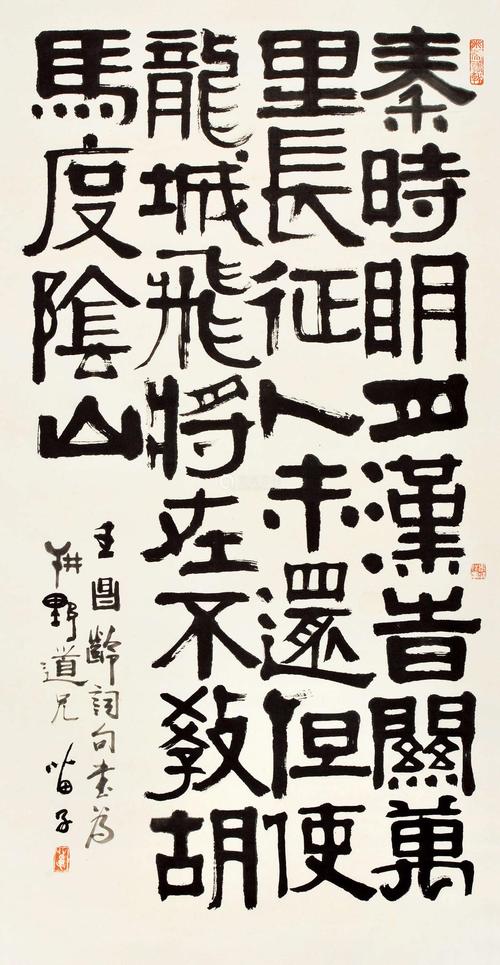 秦時眀月漢旹關萬
里長征人未還但使
龍城飛將在不敎胡
馬度陰山
王昌齡詞句書為
野道兄